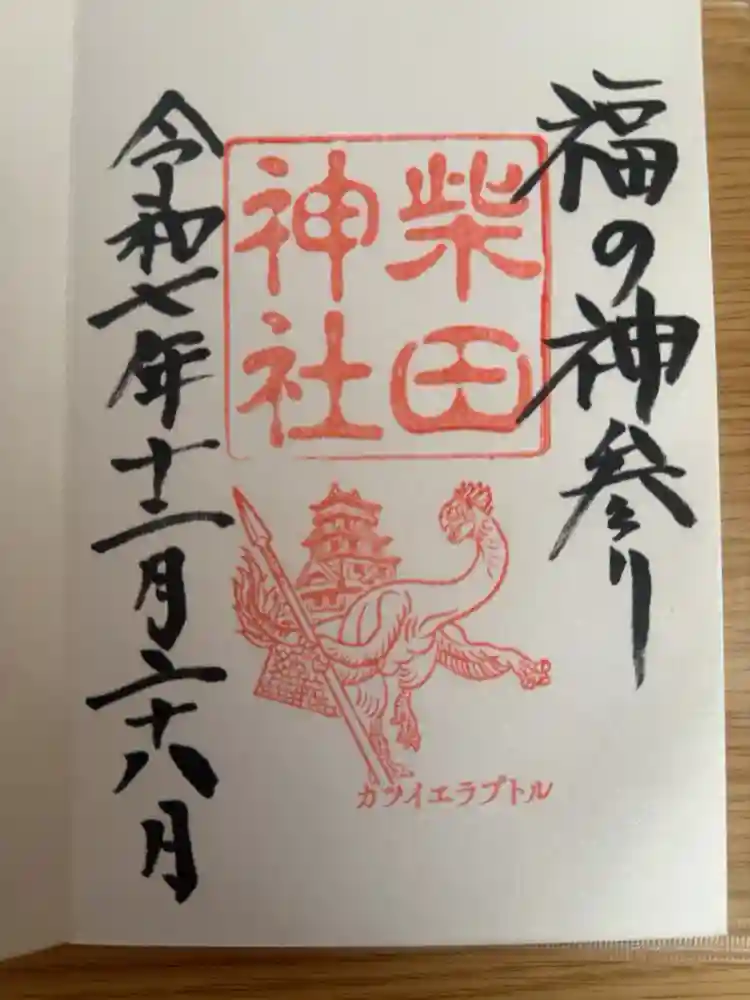 福の神参り
柴田
神社
カツイエラプトル
令和七年十二月二十八月